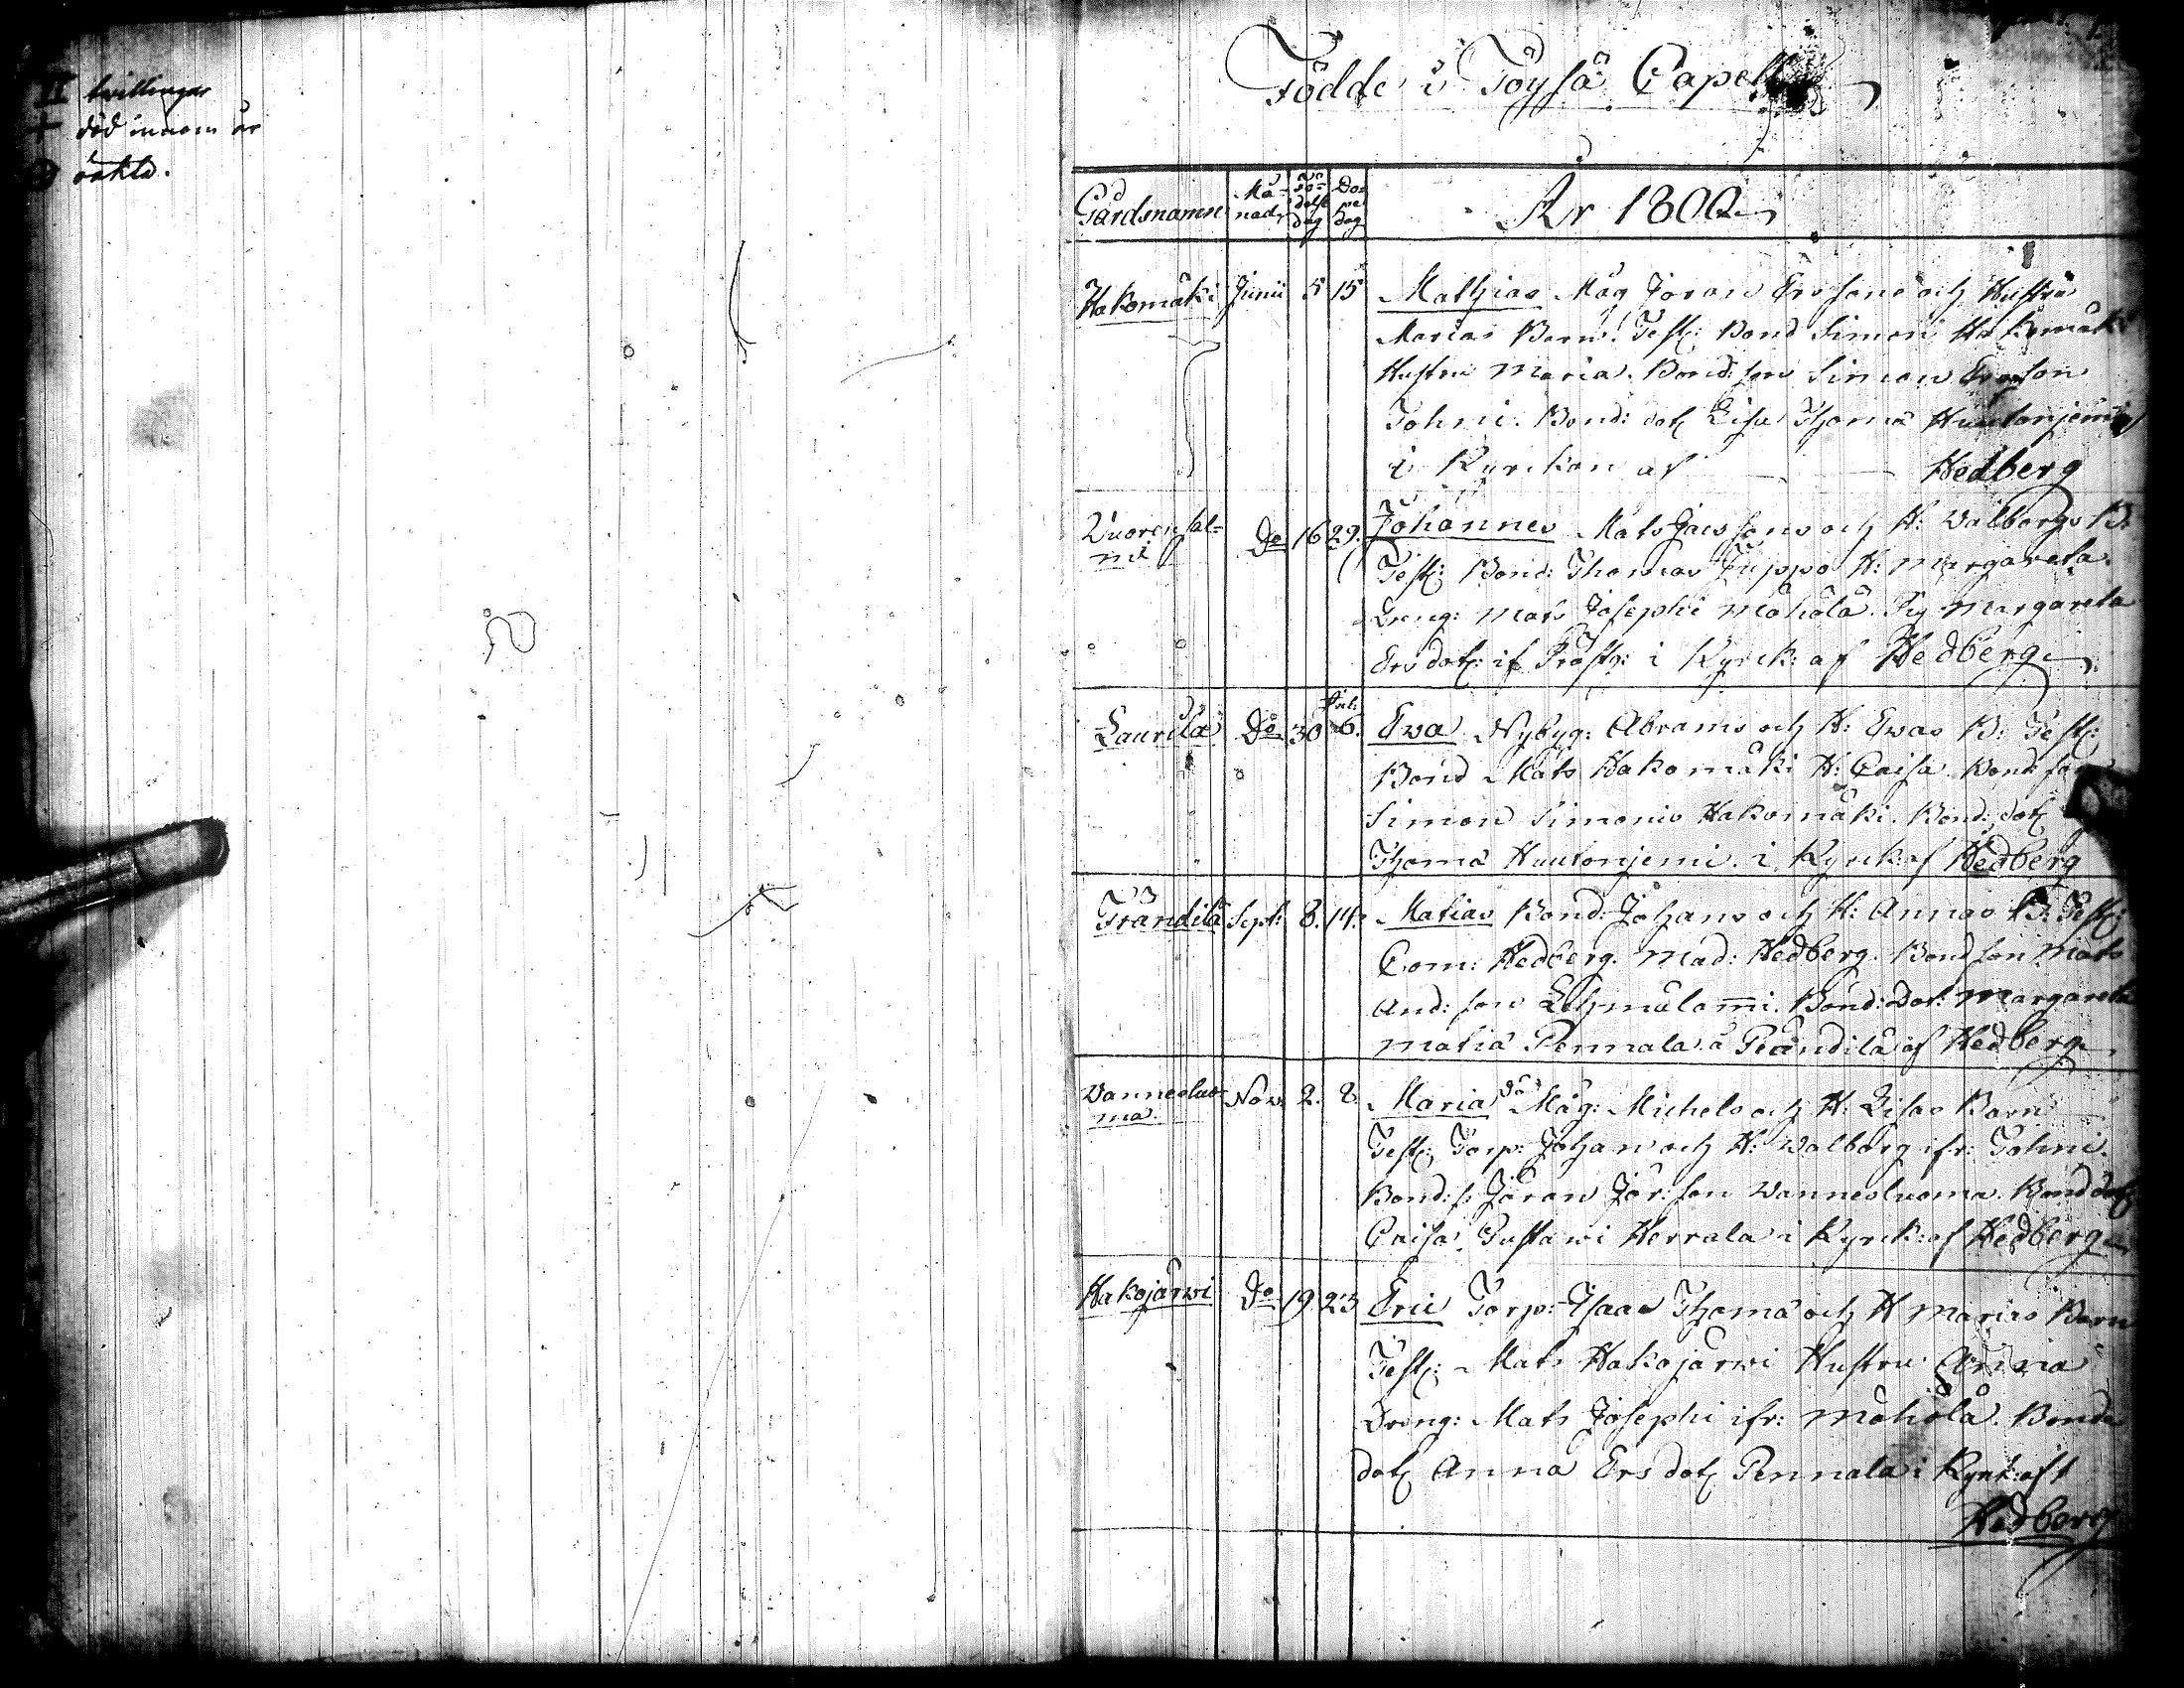 II tvillingar
+ död innom år
oäkta.
Födde i Töysä Capell
Gårdsnamn Må-nad Fö-delse dag Dö-pe dag År 1800
Hakomäki Junii 5 15 Mathias Måg Jöran Ersons och Hustru
Marias Barn. Test: Bond Simon Hakomäki
Hustru Maria. Bond: son Simon Ersson
Tohni. Bond: dot: Lisa Thomæ Huutonjemi
i Kyrckan af Hedberg
Vuorensal-mi Do 16 29. Johannes Mats Jacssons och H: Walborgs B.
Test: Bond: Thomas Juppo H: Margareta.
Dreng: Mats Josephi Mäkölä. Pig Margareta
Ersdot: if i Kyrck: af Hedberg
Laurila Do 30 6. Ewa Nybyg: Abrams och H: Ewas B: Test:
Bond Mats Hakomäki H: Caisa Bond: son
Simon Simonis Hakomäki. Bond: dot:
Thomæ Huutonjemi. i Kyrck: af Hedberg
Prändilä Sept: 8. 14. Matias Bond: Johans och H: Annas B: Test:
Com: Hedberg. Mad: Hedberg. Bond son Mats
And: son Lehmälammi. Bond: Dot: Margareta
Matiæ Pennala. å Prändilä af Hedberg.
Wanneslu-ma. Nov. 2. 8. Maria Måg: Michels och H: Lisas Barn
Test: Torp: Johan och H: Walborg ifr: Tohni.
Bond: s: Jöran Jör: son Wannesluoma. Bond dot
Caisa Gustawi Herrala i Kyrck: af Hedberg
Hakojärwi Do 19 23 Eric Torp: Isaac Thomæ och H Marias Barn
Test: Mats Hakojärwi Hustru Anna
Dreng: Mats Josephi ifr: Mäkölä. Bonde
dot: Anna Ers dot: Pennala i Kyrk: af
Hedberg